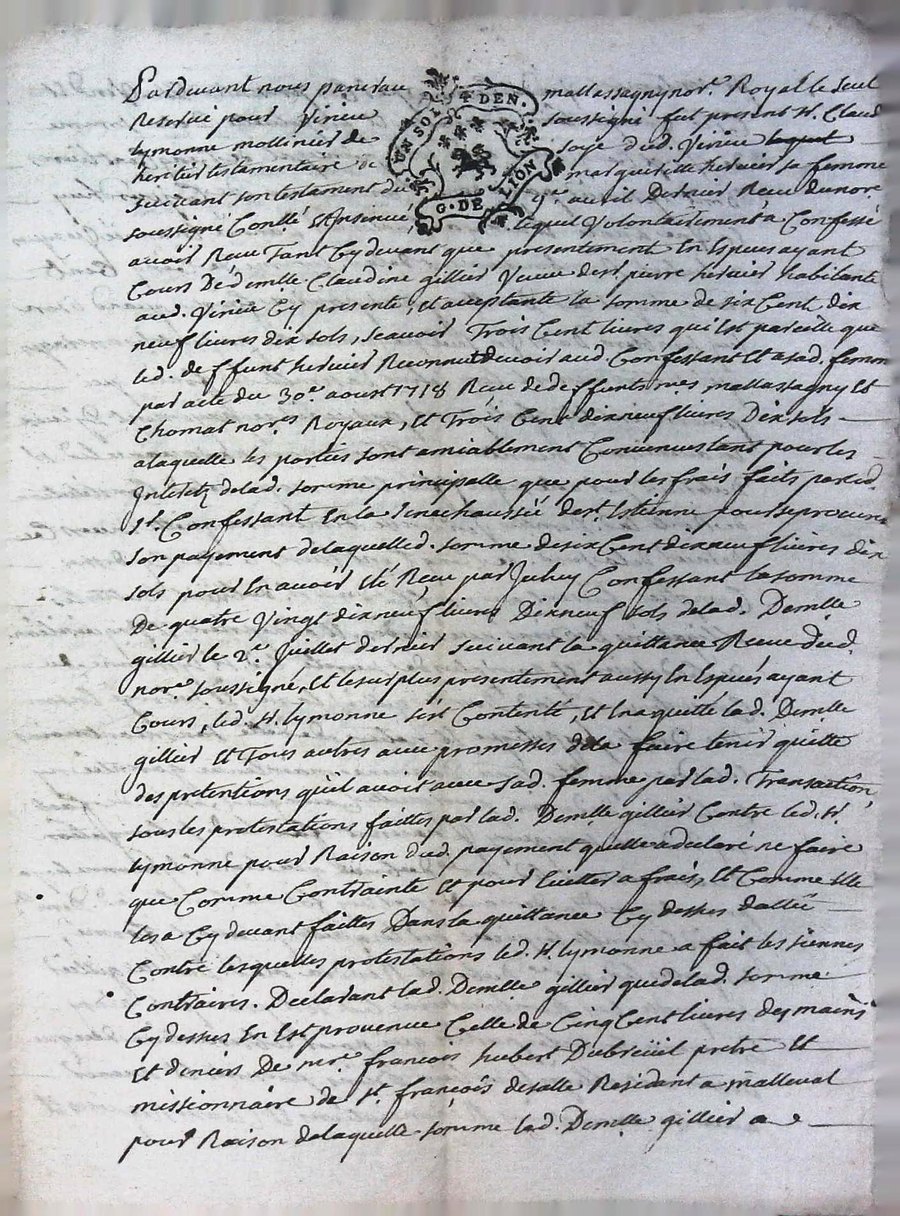 Pardevant nous pancrau mallassagny nore. Royal le seul
Reservé pour Virieu soussigné fut present Sr. Claud
lymonne mollinier de soye dud. Virieu lequel
heritier testamentaire de margueritte hervier sa femme
suivant son testament du 9e. avril dernier Receu du nore
UN SOL 4 DEN.
G. DE LION
soussigné Conllé lequel Volontairement a Confessé
avoir Receu Tant Cydevant que presentement En Espèces ayant
Cours De demlle Claudine gillier Veuve de Sr. pierre hervier habitante
aud. Virieu Cy presente, et acceptante la somme de six Cent dix
neuf livres dix sols, scavoir Trois Cent livres qui Est pareille que
led. deffunt hervier Reconnut devoir aud. Confessant Et a sad. femme
par acte du 30e. aoust 1718 Receu de deffunts mes mallassagny Et
Chomat nores Royaux, Et Trois Cent dixneuf livres Dix sols
a laquelle les parties sont amiablement Convenues tant pour les
Interetz de lad. somme principalle que pour les frais faits par led.
Sr. Confessant En la Senechaussée de St. Estienne pour se procurer
son payement de laquelle d. somme de six Cent dixneuf livres dix
sols pour En avoir Eté Receu par Iceluy Confessant la somme
De quatre Vingt dixneuf livres Dixneuf sols de lad. Demlle
gillier le 2e. Juillet dernier suivant la quittance Receue Dud.
nore. soussigné, Et le surplus presentement aussy En Espèces ayant
Cours, led. Sr. lymonne s'est Contenté, Et En a quitté lad. Demlle
gillier Et Tous autres avec promesses de la faire tenir quitte
des pretentions qu'il avoit avec sad. femme par lad. Transaction
sous les protestations faittes par lad. Demlle gillier Contre led. Sr.
lymonne pour Raison dud. payement quelle a declaré ne faire
que Comme Contrainte Et pour Eviter a frais, Et Comme Elle
les a Cy devant faittes Dans la quittance Cy dessus dattée
Contre lesquelles protestations led. Sr. lymonne a fait les siennes
Contraires. Declarant lad. Demlle gillier que de lad. somme
Cy dessus En Est provenue Celle de Cinq Cent livres des mains
Et deniers De mre. francois hubert Dubreüil pretre Et
missionnaire de St. françois de salle Residant a malleval
pour Raison de laquelle somme lad. Demlle gillier a